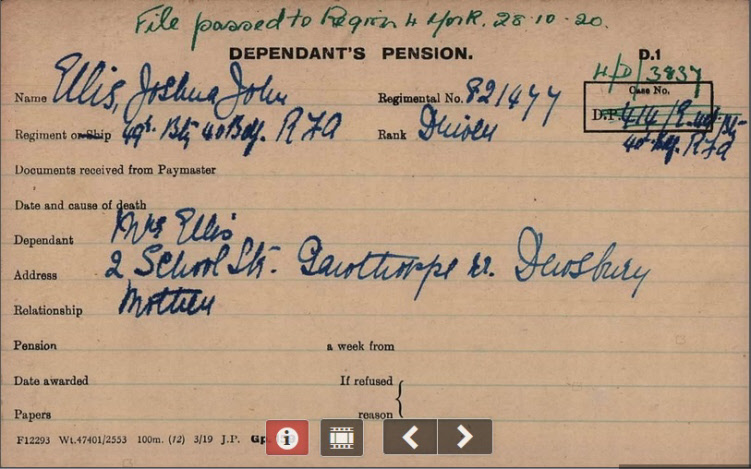 File passed to Region 4 York. 28.10.20.
DEPENDANT'S PENSION.
D.1
4/D/3837
Name Ellis, Joshua John
Regimental No. 821477
Case No.
D.P. 414/E.
Regiment or Ship 49th Bty 40 Bde. RFA
Rank Driver
40th Bde. RFA
Documents received from Paymaster
Date and cause of death
Dependant Mrs Ellis
Address 2 School St. Gawthorpe nr. Dewsbury
Relationship Mother
Pension a week from
Date awarded If refused
Papers reason
F12293 Wt.47401/2553 100m. (12) 3/19 J.P. Gp.